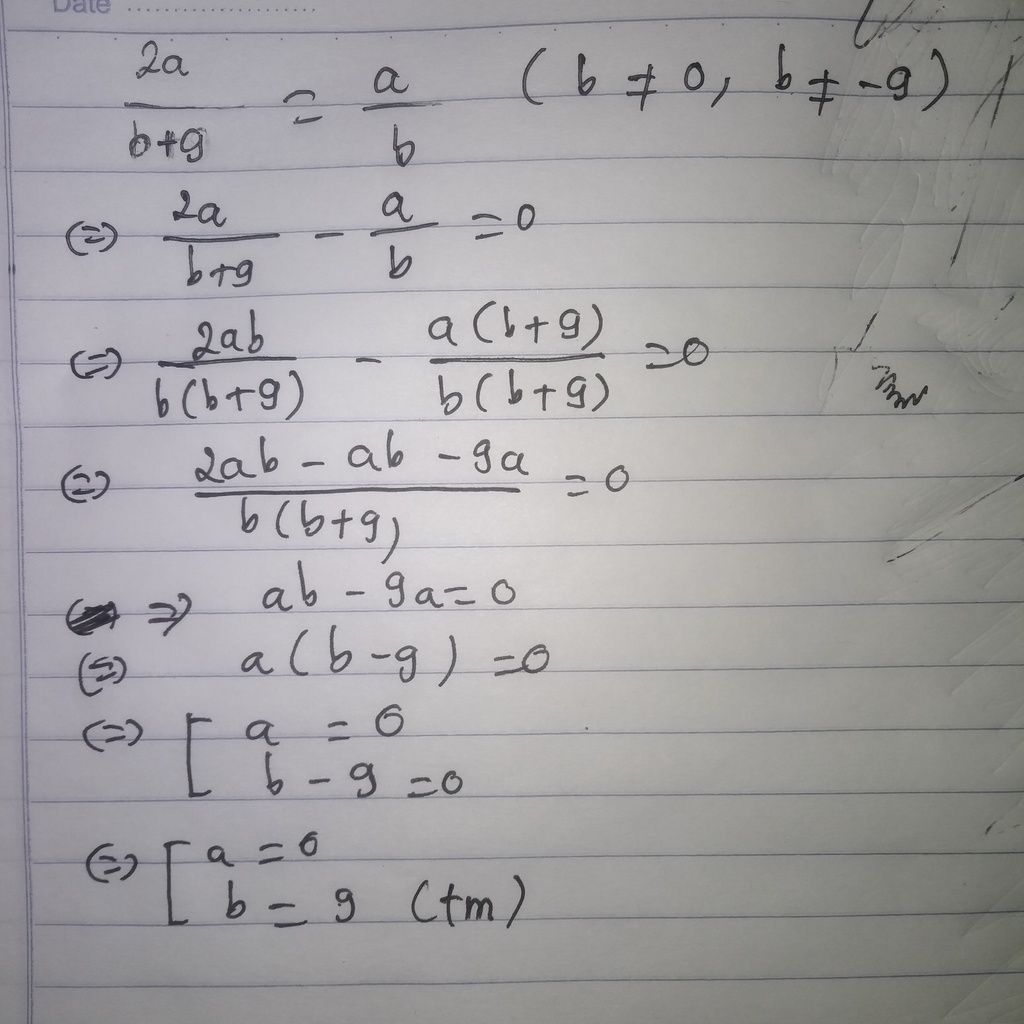 Date ........................
2a/(b+9) = a/b (b ≠ 0, b ≠ -9)
(=) 2a/(b+9) - a/b = 0
(=) 2ab/(b(b+9)) - a(b+9)/(b(b+9)) = 0
(=) (2ab - ab - 9a)/(b(b+9)) = 0
=> ab - 9a = 0
(=) a(b-9) = 0
(=) [ a = 0
b - 9 = 0
(=) [ a = 0
b = 9 (tm)